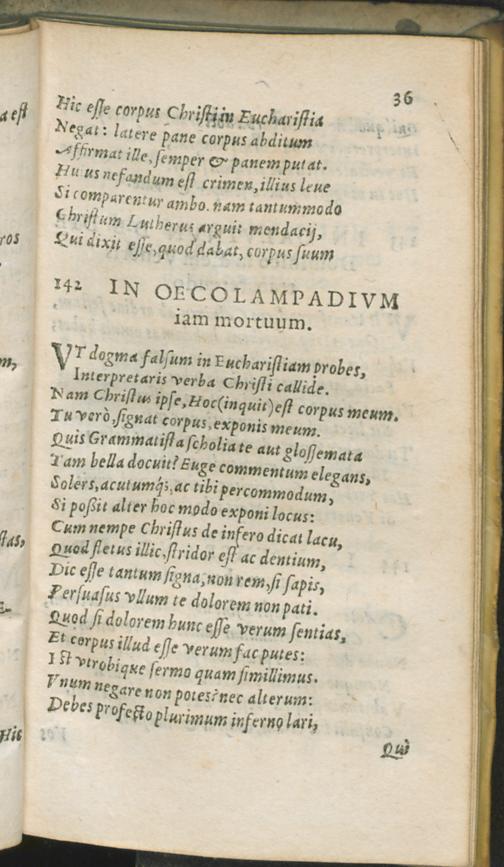 36
a est
Hic esse corpus Christi in Eucharistia
Negat: latere pane corpus abditum
Affirmat ille, semper & panem putat.
Huius nefandum est crimen, illius leue
Si comparentur ambo. nam tantummodo
Christum Lutherus arguit mendacij,
ros
Qui dixit esse, quod dabat, corpus suum
142 IN OECOLAMPADIVM
iam mortuum.
m,
VT dogma falsum in Eucharistiam probes,
Interpretaris verba Christi callide.
Nam Christus ipse, Hoc (inquit) est corpus meum.
Tu verò, signat corpus, exponis meum.
Quis Grammatista scholia te aut glossemata
Tam bella docuit? Euge commentum elegans,
Solers, acutumq́;, ac tibi percommodum,
Si poßit alter hoc modo exponi locus:
Cum nempe Christus de infero dicat lacu,
stas,
Quod fletus illic, stridor est ac dentium,
Dic esse tantum signa, non rem, si sapis,
Persuasus vllum te dolorem non pati.
Quod si dolorem hunc esse verum sentias,
Et corpus illud esse verum fac putes:
Ist vtrobique sermo quam simillimus.
Vnum negare non potes? nec alterum:
Debes profecto plurimum inferno lari,
Hic
Qui